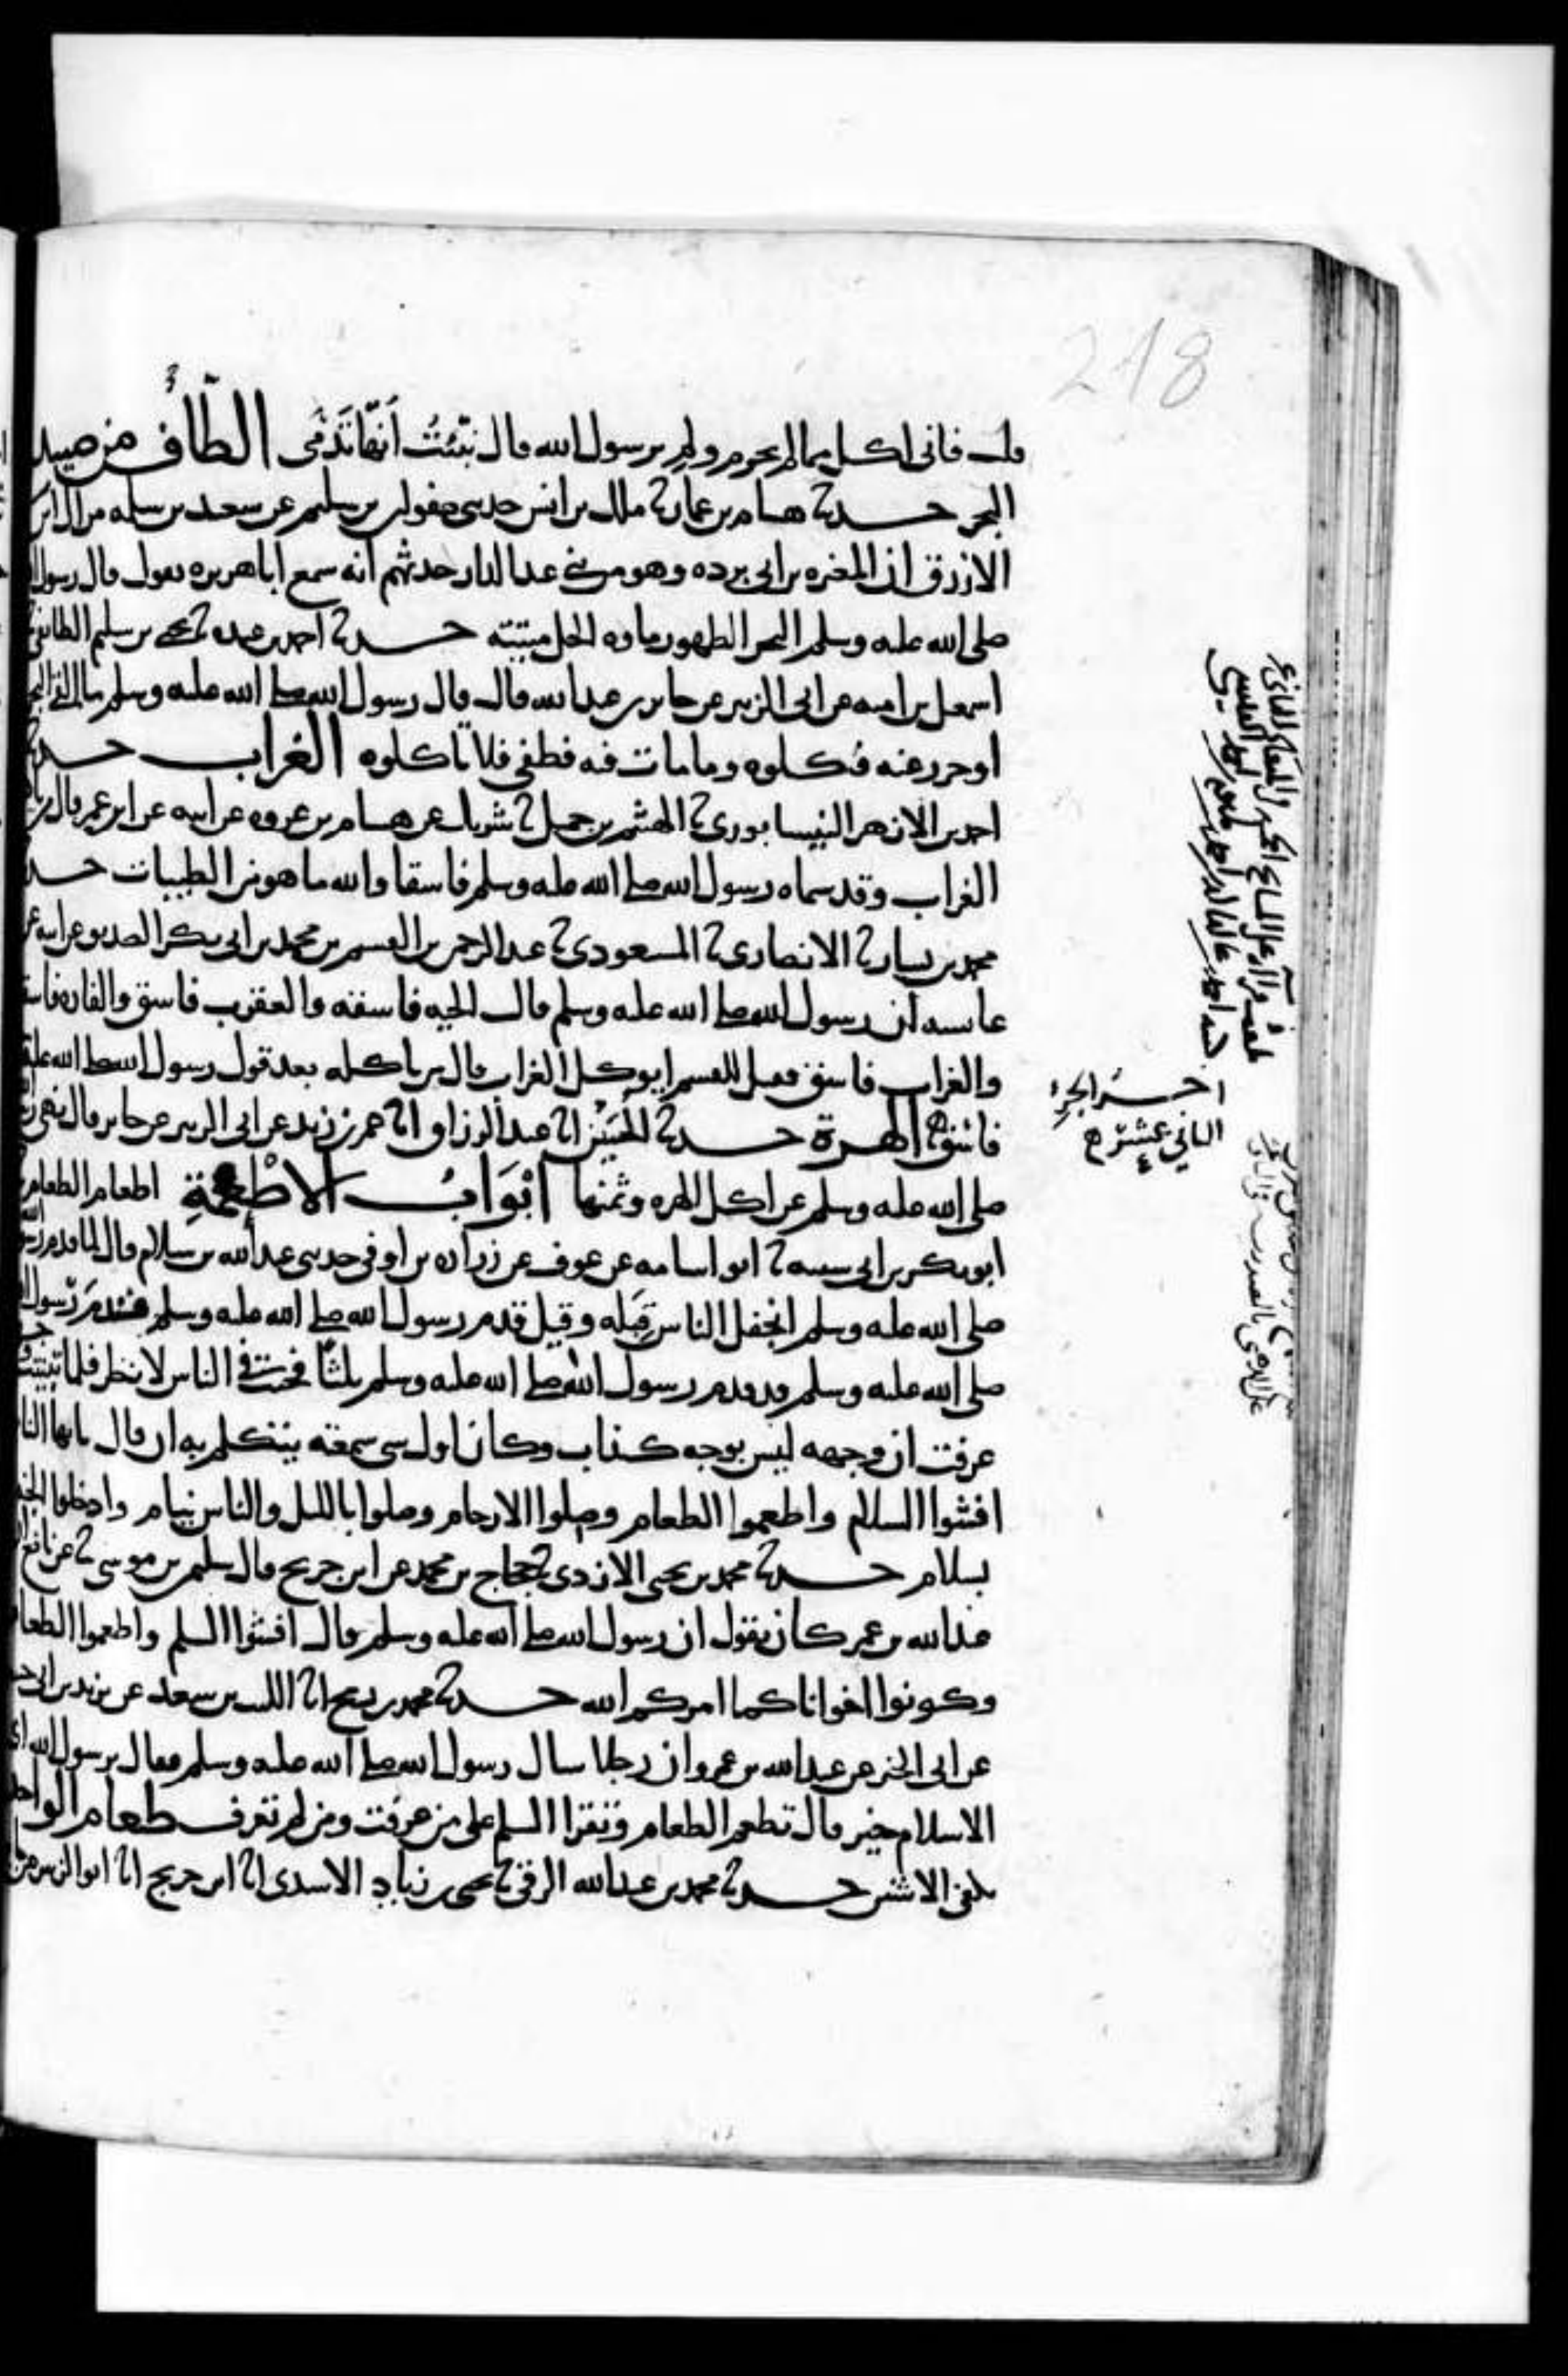 218
قلت فاني اكل مما لم يحرم ولم يرسول الله قال نبئت انها تدمى الطافى من صيد
البحر حدثنا هشام بن عمار ثنا ملك بن انس حدثني صفوان بن سليم عن سعيد بن سلمه من ال ابن
الازرق ان المغيره بن ابي برده وهو من بني عبد الدار حدثهم انه سمع ابا هريره يقول قال رسول
صلى الله عليه وسلم البحر الطهور ماوه الحل ميتته حدثنا احمد بن عبده ثنا يحيى بن سليم الطائفي
اسمعيل بن اميه عن ابي الزبير عن جابر بن عبد الله قال قال رسول الله صلى الله عليه وسلم ما القى البحر
او جزر عنه فكلوه وما مات فيه فطفى فلا تاكلوه الغراب حدثنا
احمد بن الازهر النيسابوري ثنا الهيثم بن جميل ثنا شريك عن هشام بن عروه عن ابيه عن ابن عمر قال من ياكل
الغراب وقد سماه رسول الله صلى الله عليه وسلم فاسقا والله ما هو من الطيبات حدثنا
محمد بن بشار ثنا الانصاري ثنا المسعودي ثنا عبد الرحمن بن القسم بن محمد بن ابي بكر الصديق عن ابيه عن
عائشه ان رسول الله صلى الله عليه وسلم قال الحيه فاسقه والعقرب فاسق والفاره فاسق
والغراب فاسق فقيل للقسم ايوكل الغراب قال من ياكله بعد قول رسول الله صلى الله عليه
فاسق الهرة حدثنا الحسين انا عبد الرزاق انا عمر بن زيد عن ابي الزبير عن جابر قال نهى رسول
صلى الله عليه وسلم عن اكل الهره وثمنها ابواب الاطعمة اطعام الطعام
ابو بكر بن ابي شيبه ثنا ابو اسامه عن عوف عن زراره بن اوفى حدثني عبد الله بن سلام قال لما قدم رسول الله
صلى الله عليه وسلم انجفل الناس قبله وقيل قدم رسول الله صلى الله عليه وسلم قد قدم رسول الله
صلى الله عليه وسلم قد قدم رسول الله صلى الله عليه وسلم ثلثا فجئت في الناس لانظر فلما تبينت
عرفت ان وجهه ليس بوجه كذاب وكان اول شي سمعته يتكلم به ان قال يايها الناس
افشوا السلام واطعموا الطعام وصلوا الارحام وصلوا بالليل والناس نيام وادخلوا الجنه
بسلام حدثنا محمد بن يحيى الازدي ثنا حجاج بن محمد عن ابن جريج قال سليمن بن موسى ثنا عن نافع
عبد الله بن عمر كان يقول ان رسول الله صلى الله عليه وسلم قال افشوا السلم واطعموا الطعام
وكونوا اخوانا كما امركم الله حدثنا محمد بن رمح انا الليث بن سعد عن يزيد بن ابي
عن ابي الخير عن عبد الله بن عمرو ان رجلا سال رسول الله صلى الله عليه وسلم فقال يرسول الله اي
الاسلام خير قال تطعم الطعام وتقرا السلم على من عرفت ومن لم تعرف طعام الواحد
يكفي الاثنين حدثنا محمد بن عبد الله الرقي ثنا يحيى بن زياد الاسدي انا ابن جريج انا ابو الزبير
اخر الجزء
الثاني عشر